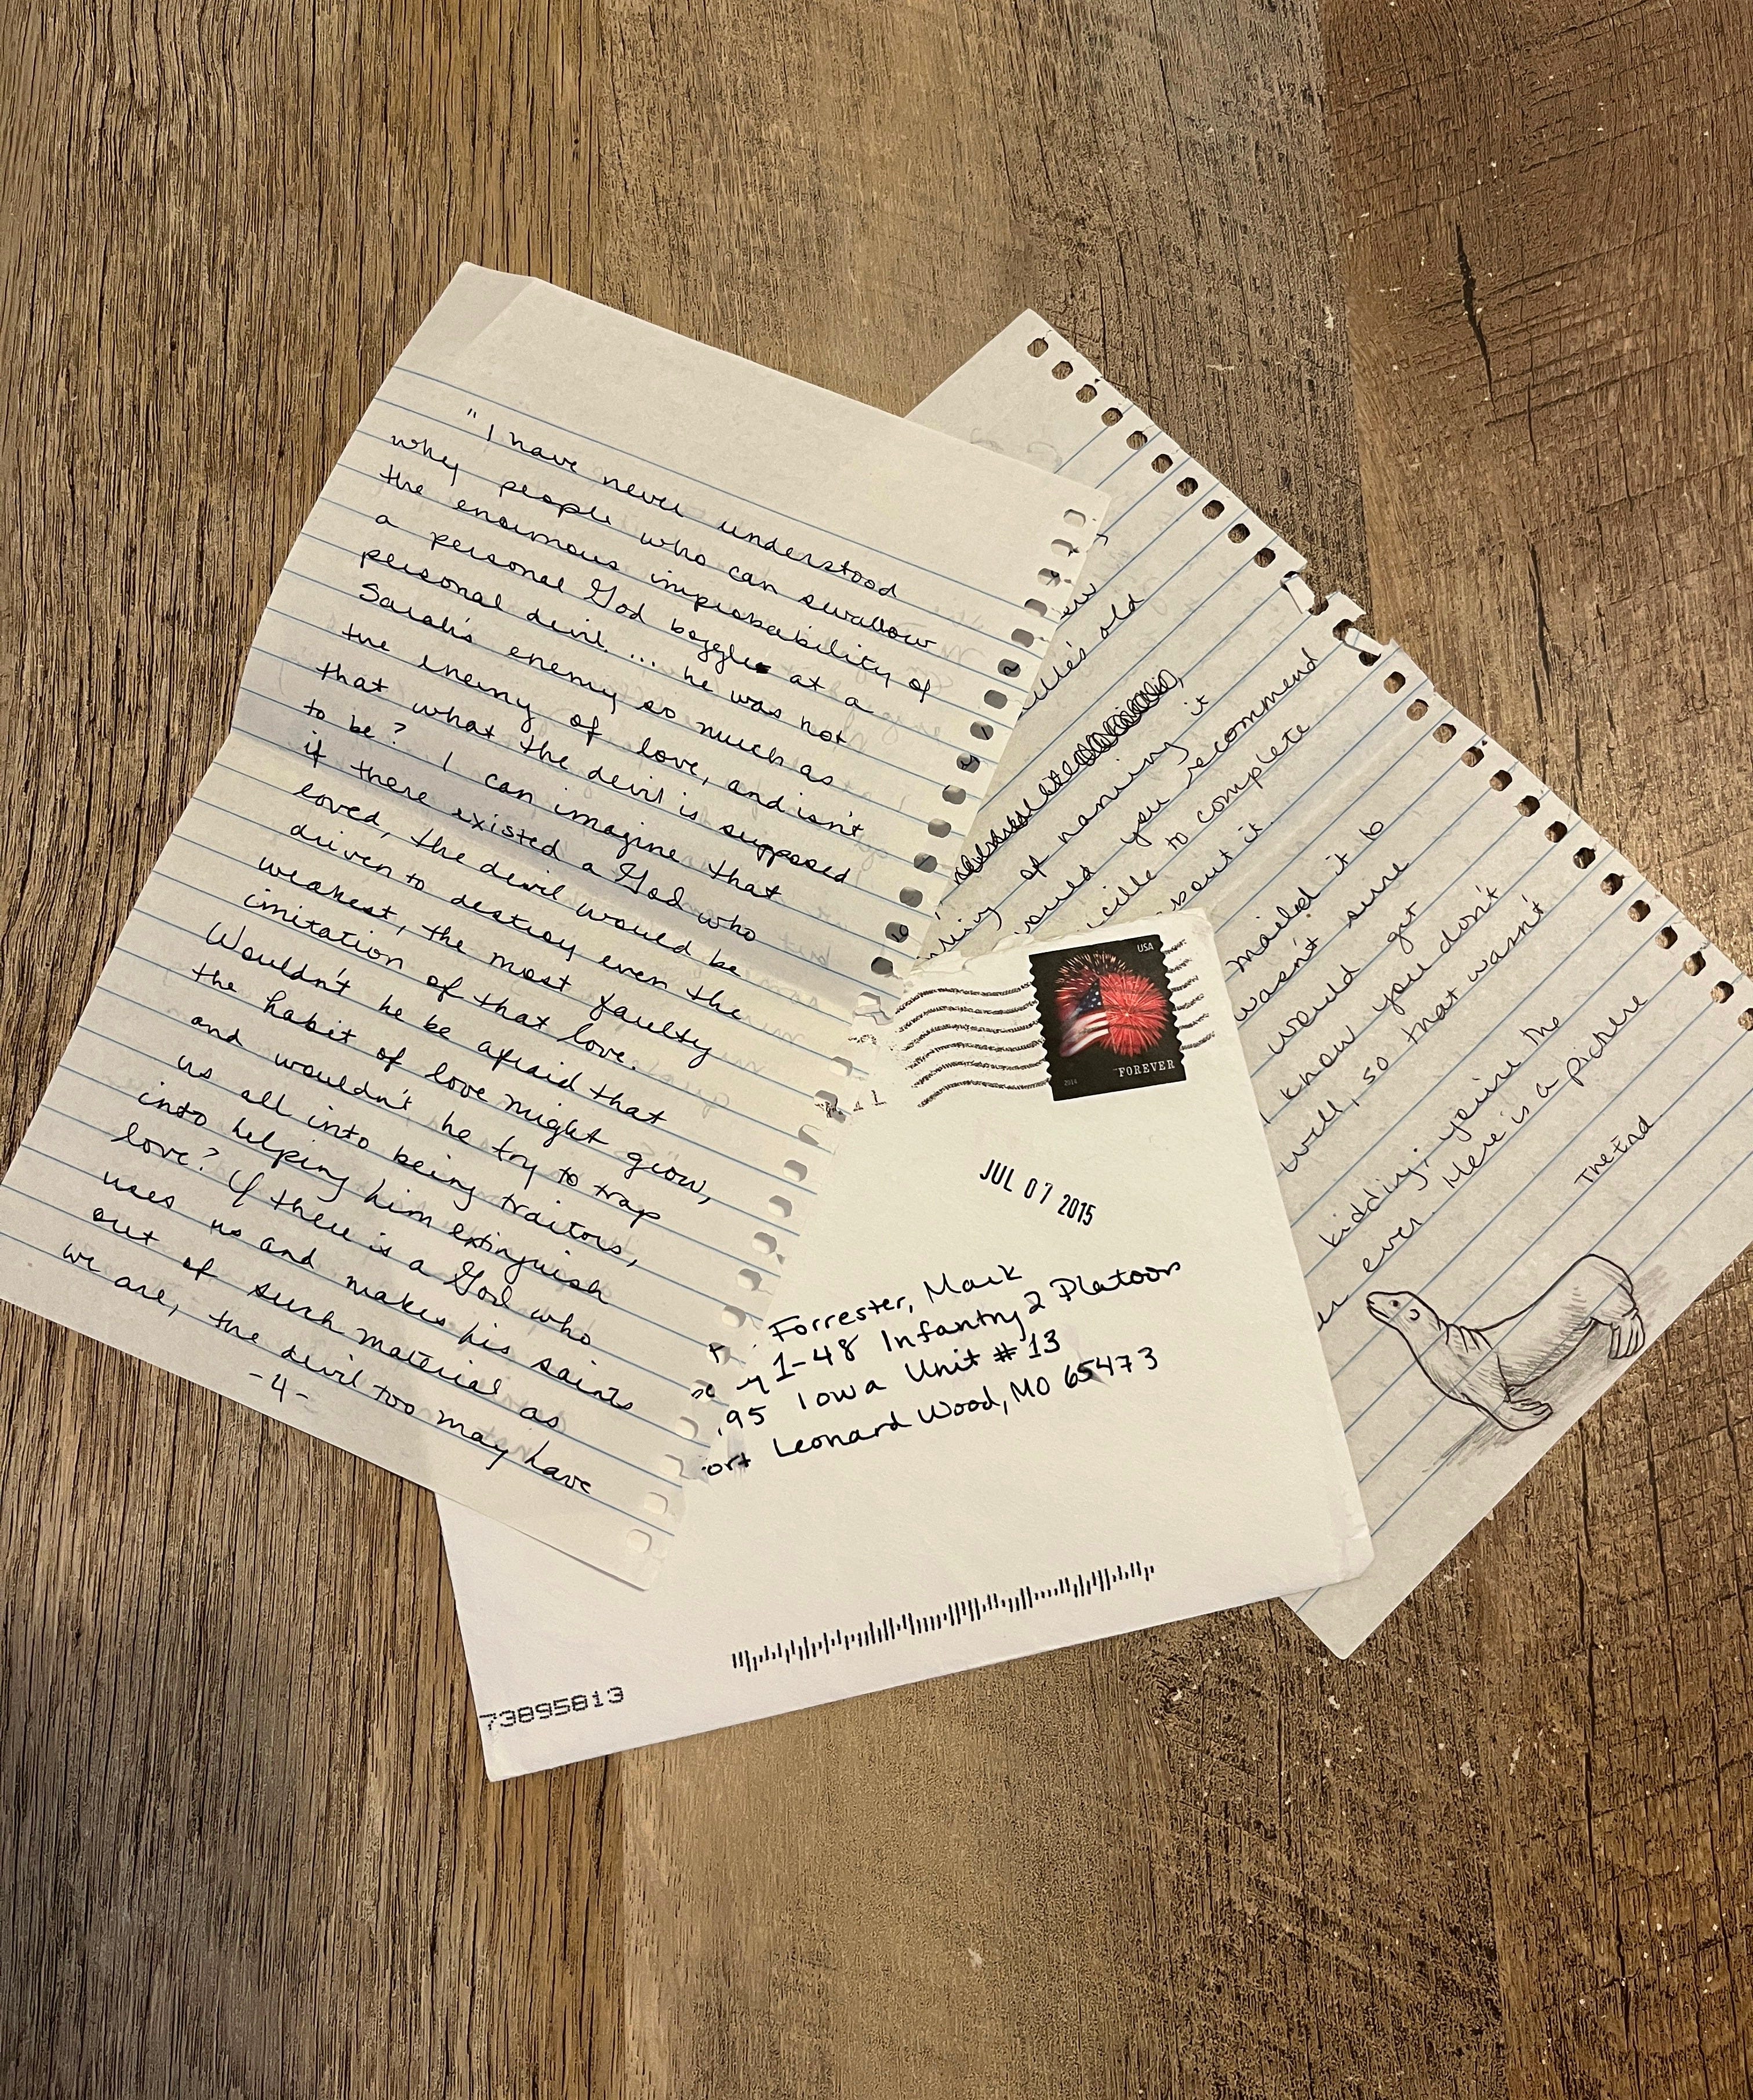 "I have never understood
why people who can swallow
the enormous improbability of
a personal God boggle at a
personal devil.... he was not
Sarah's enemy so much as
the enemy of love, and isn't
that what the devil is supposed
to be? I can imagine that
if there existed a God who
loved, the devil would be
driven to destroy even the
weakest, the most faulty
imitation of that love.
Wouldn't he be afraid that
the habit of love might grow,
and wouldn't he try to trap
us all into being traitors,
into helping him extinguish
love? If there is a God who
uses us and makes his saints
out of such material as
we are, the devil too may have
-4-
old
of naming it
would you recommend
to complete
about it.
mailed it to
wasn't sure
would get
I know you don't
will, so that wasn't
kidding, you're the
ever. Here is a picture
The End
USA
FOREVER
2014
JUL 07 2015
Forrester, Mark
1-48 Infantry 2 Platoon
95 Iowa Unit #13
ort Leonard Wood, MO 65473
73895813